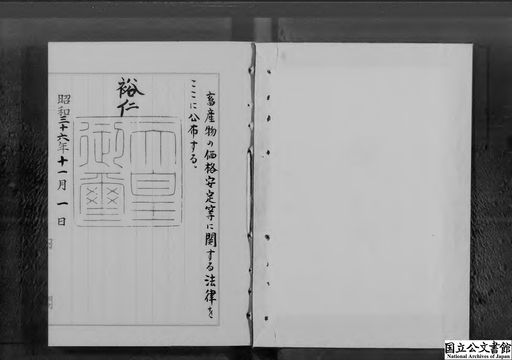 畜産物の価格安定等に関する法律を
ここに公布する。
裕仁
天皇
御璽
昭和三十六年十一月一日
国立公文書館
National Archives of Japan